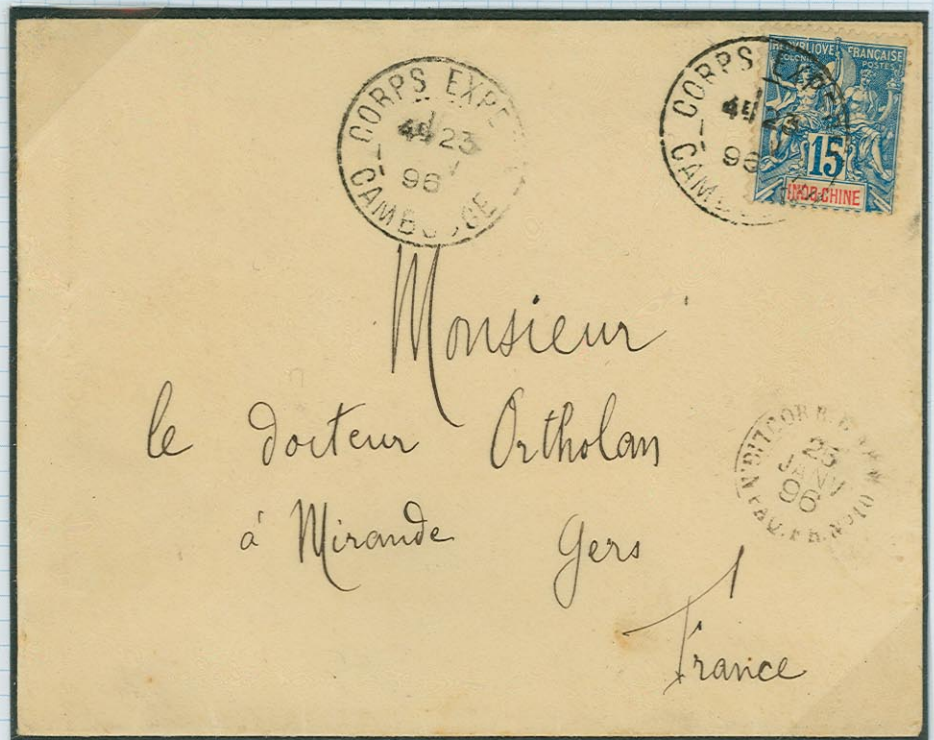 CORPS EXPE
23
96
CAMBODGE
CORPS EXPE
23
96
REPUBLIQUE FRANÇAISE
COLONIES POSTES
15
INDO-CHINE
Monsieur
le docteur Ortholan
à Mirande Gers
France
25
JANV
96